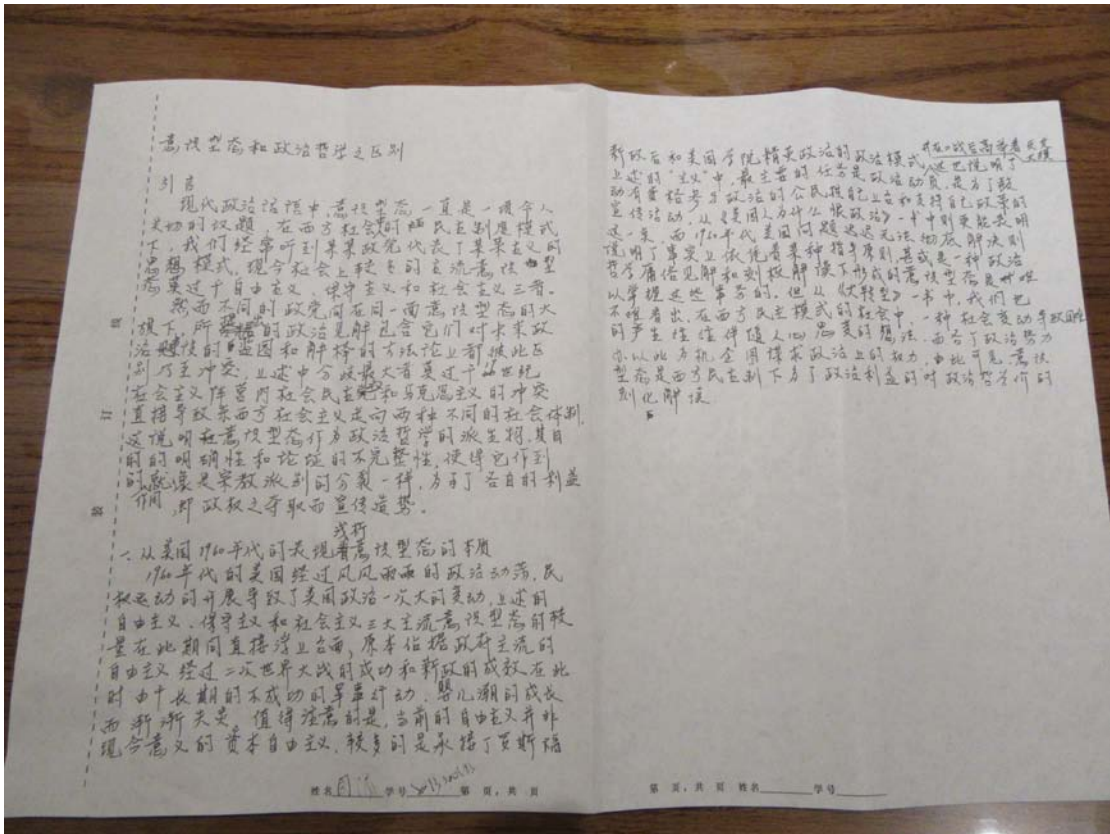 意识型态和政治哲学之区别
引言
现代政治话语中,意识型态一直是一项令人
关切的议题,在西方社会的民主制度模式
下,我们经常听到某某政党代表了某某主义的
思想模式,现今社会上较多的主流意识型
态莫过于自由主义、保守主义和社会主义三者。
然而不同的政党间在同一面意识型态的大
旗下,所的政治见解包含它们对未来政
治的蓝图和解释的方法论上都彼此区
别乃至冲突,上述中分歧最大者莫过于世纪
社会主义阵营内社会民主党和马克思主义的冲突
直接导致东西方社会主义走向两种不同的社会体制,
这说明在意识型态作为政治哲学的派生物,其目
的的明确性和论域的不完整性,使得它作到
的就像是宗教派别的分裂一样,为了各自的利益
作用,即政权之夺取而宣传造势。
浅析
一、从美国1960年代的表现看意识型态的本质
1960年代的美国经过风风雨雨的政治动荡,民
权运动的开展导致了美国政治一次大的变动,上述的
自由主义、保守主义和社会主义三大主流意识型态的较
量在此期间直接浮上台面,原本占据政府主流的
自由主义经过二次世界大战的成功和新政的成效在此
时由于长期的不成功的军事行动、婴儿潮的成长
而渐渐失灵。值得注意的是,当前的自由主义并非
现今意义的资本自由主义,较多的是承接了罗斯福
装
订
线
姓名 学号 第 页,共 页
新政后和美国学院精英政治的政治模式,这也说明了
并在二战后高举着反共大旗
上述的“主义”中,最主要的任务是政治动员,是为了鼓
动有资格参与政治的公民投自己上台和支持自己政策的
宣传活动,从《美国人为什么恨政治》一书中则更能表明
这一点,而1960年代美国问题迟迟无法彻底解决则
说明了事实上依凭着某种指导原则,甚或是一种政治
哲学庸俗见解和刻板解读下形成的意识型态是难
以掌握这些事务的。但从《大转型》一书中,我们也
不难看出,在西方民主模式的社会中,一种社会变动导致困难
的产生往往伴随人心思变的想法,而各了政治势力
亦以此为机企图谋求政治上的权力,由此可见,意识
型态是西方民主制下为了政治利益的对政治哲学的
刻化解读。
第 页,共 页 姓名 学号